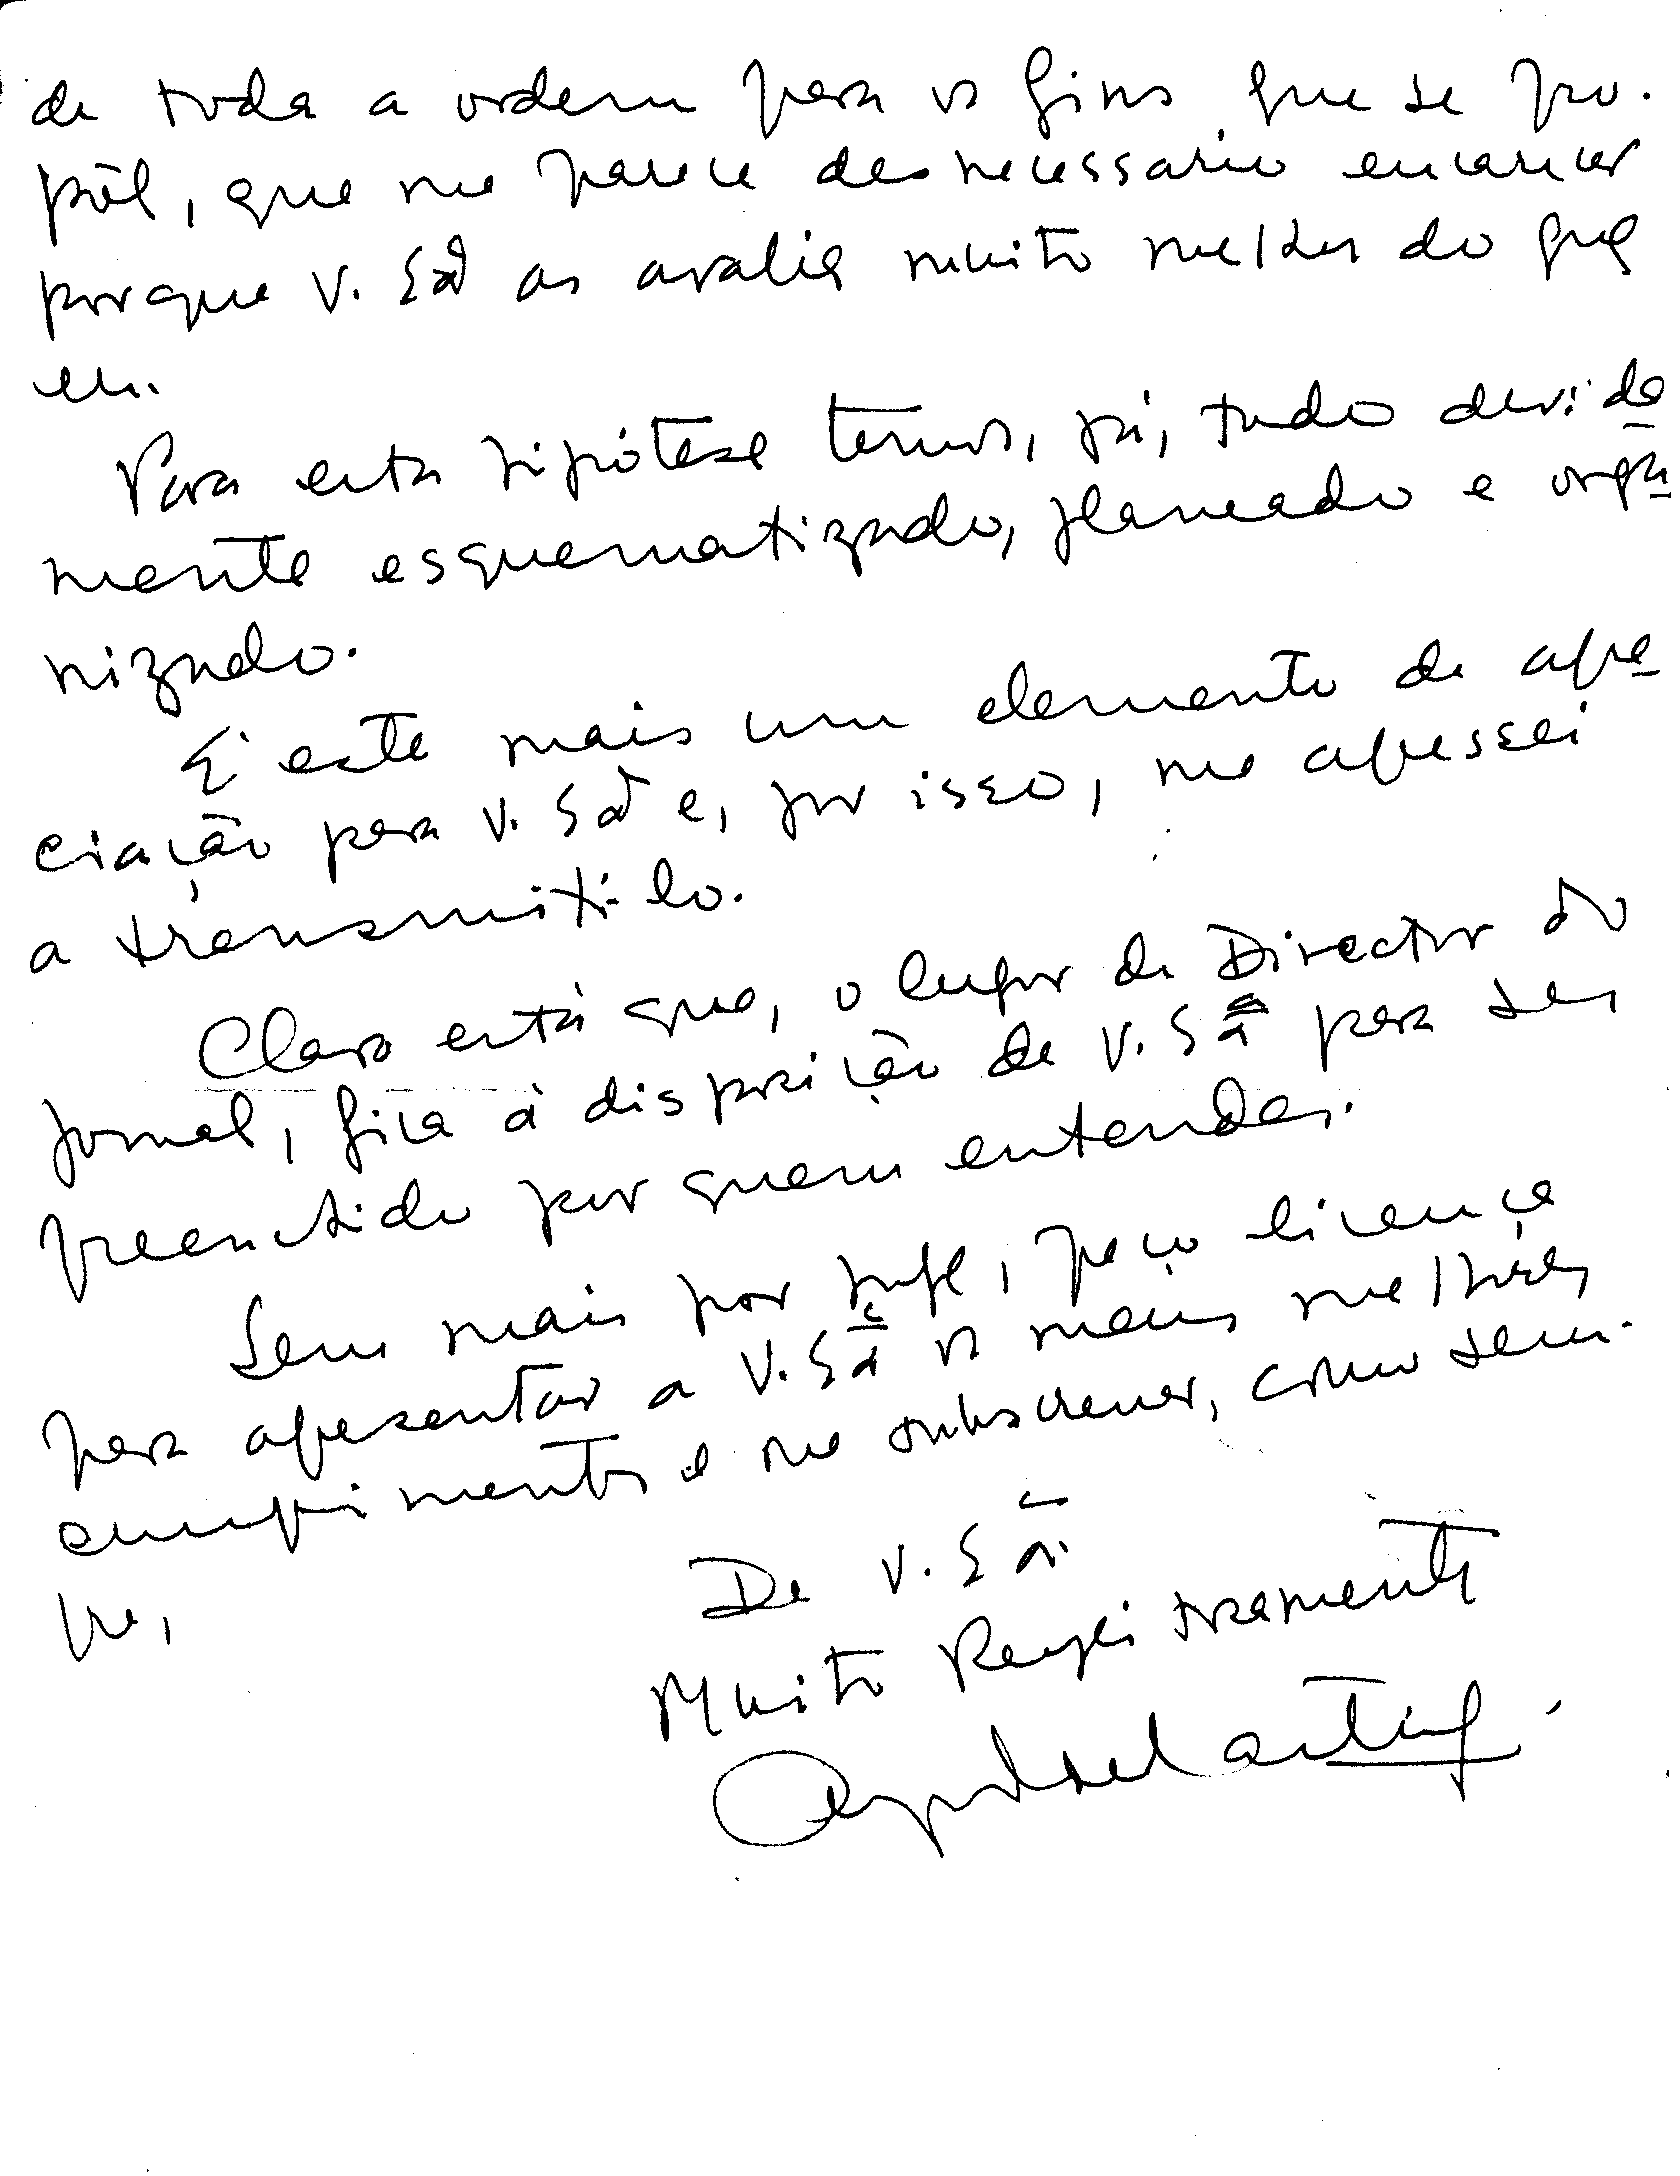 de toda a ordem para os fins que se pro-
põe, que me parece desnecessário encarecer
porque V. Exª as avalia muito melhor do que
eu.
Para esta hipótese temos, já, tudo devida
mente esquematizado, planeado e orga-
nizado.
É este mais um elemento de apre-
ciação para V. Exª e, por isso, me apressei
a transmiti-lo.
Claro está que, o lugar de Director do
jornal, fica à disposição de V. Exª para ser
preenchido por quem entender.
Sem mais por hoje, peço licença
para apresentar a V. Exª os mais melhores
cumprimentos e me subscrever, como sem-
pre,
De V. Exª
Muito Respeitosamente